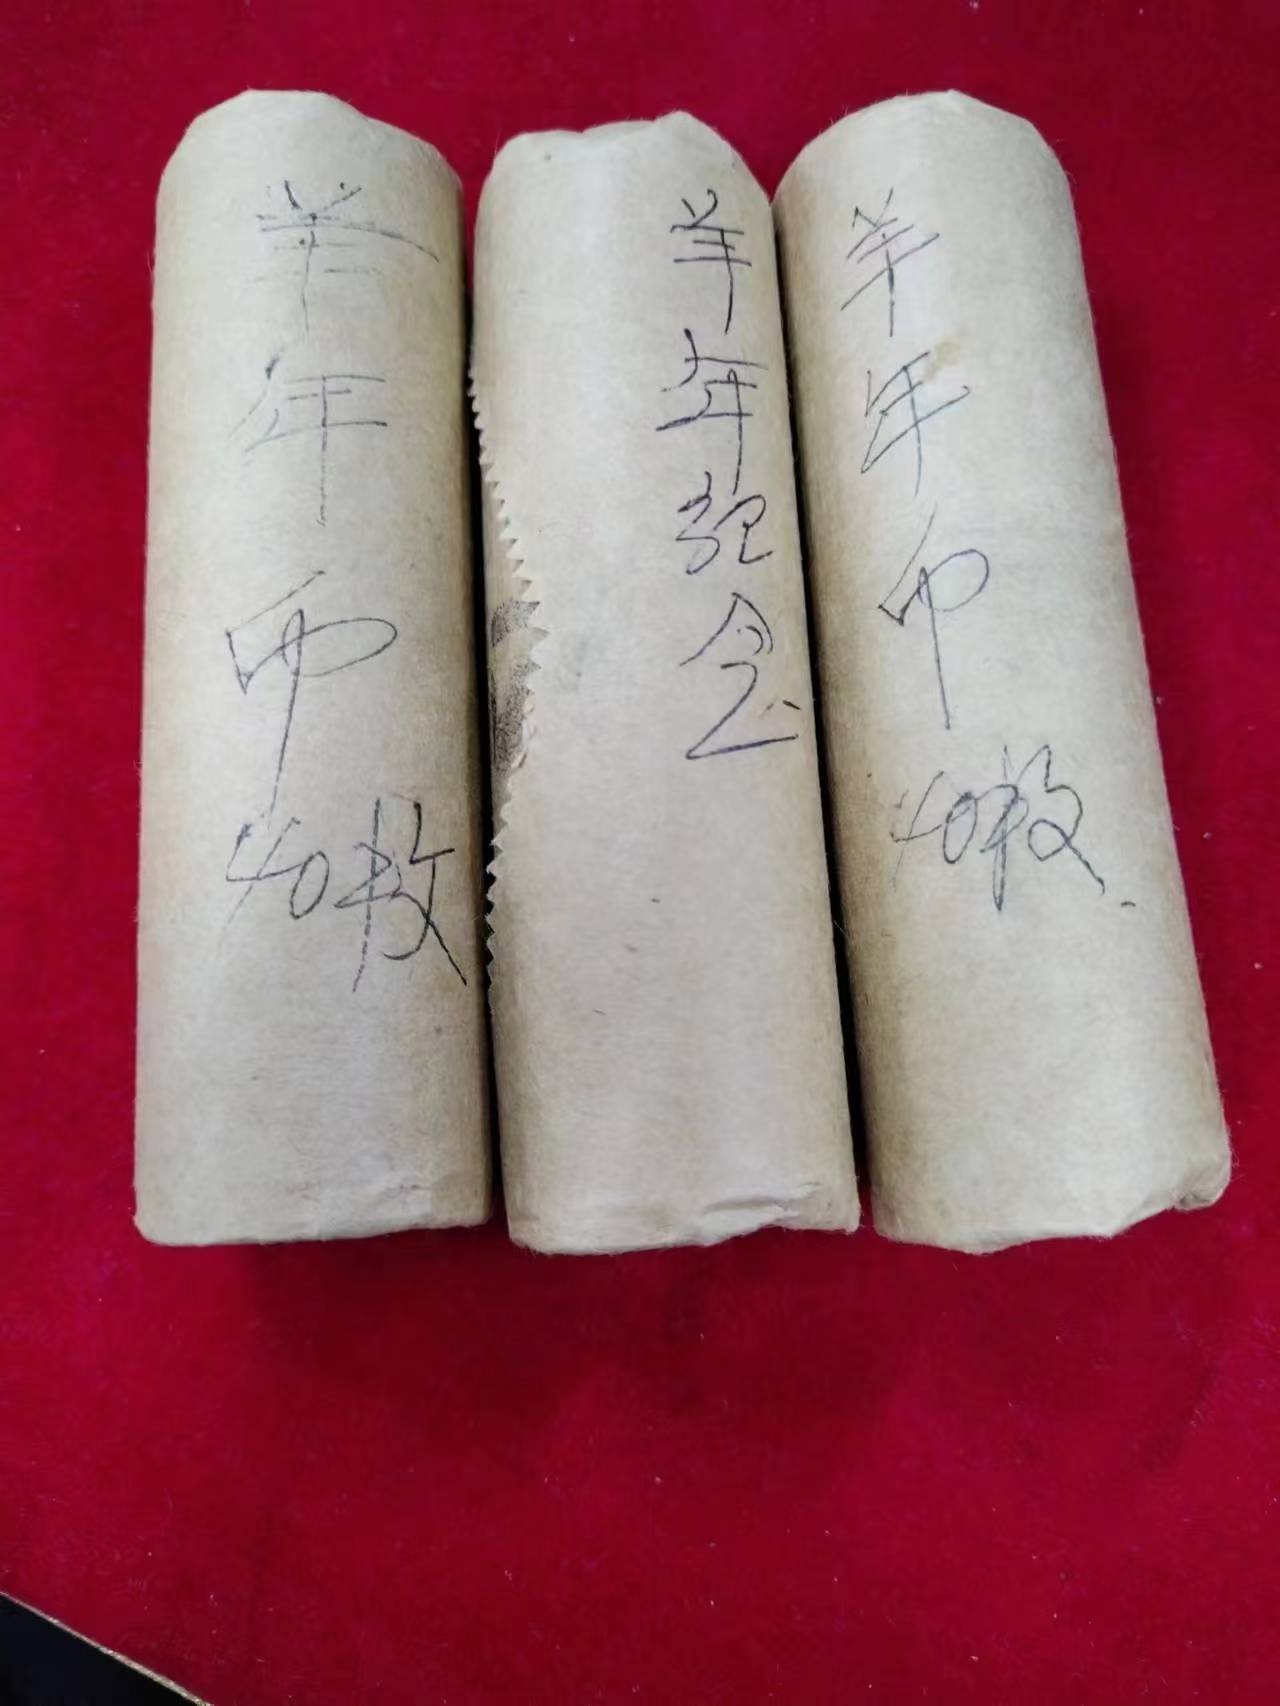 羊年币
40枚
羊年纪念
羊年币
40枚